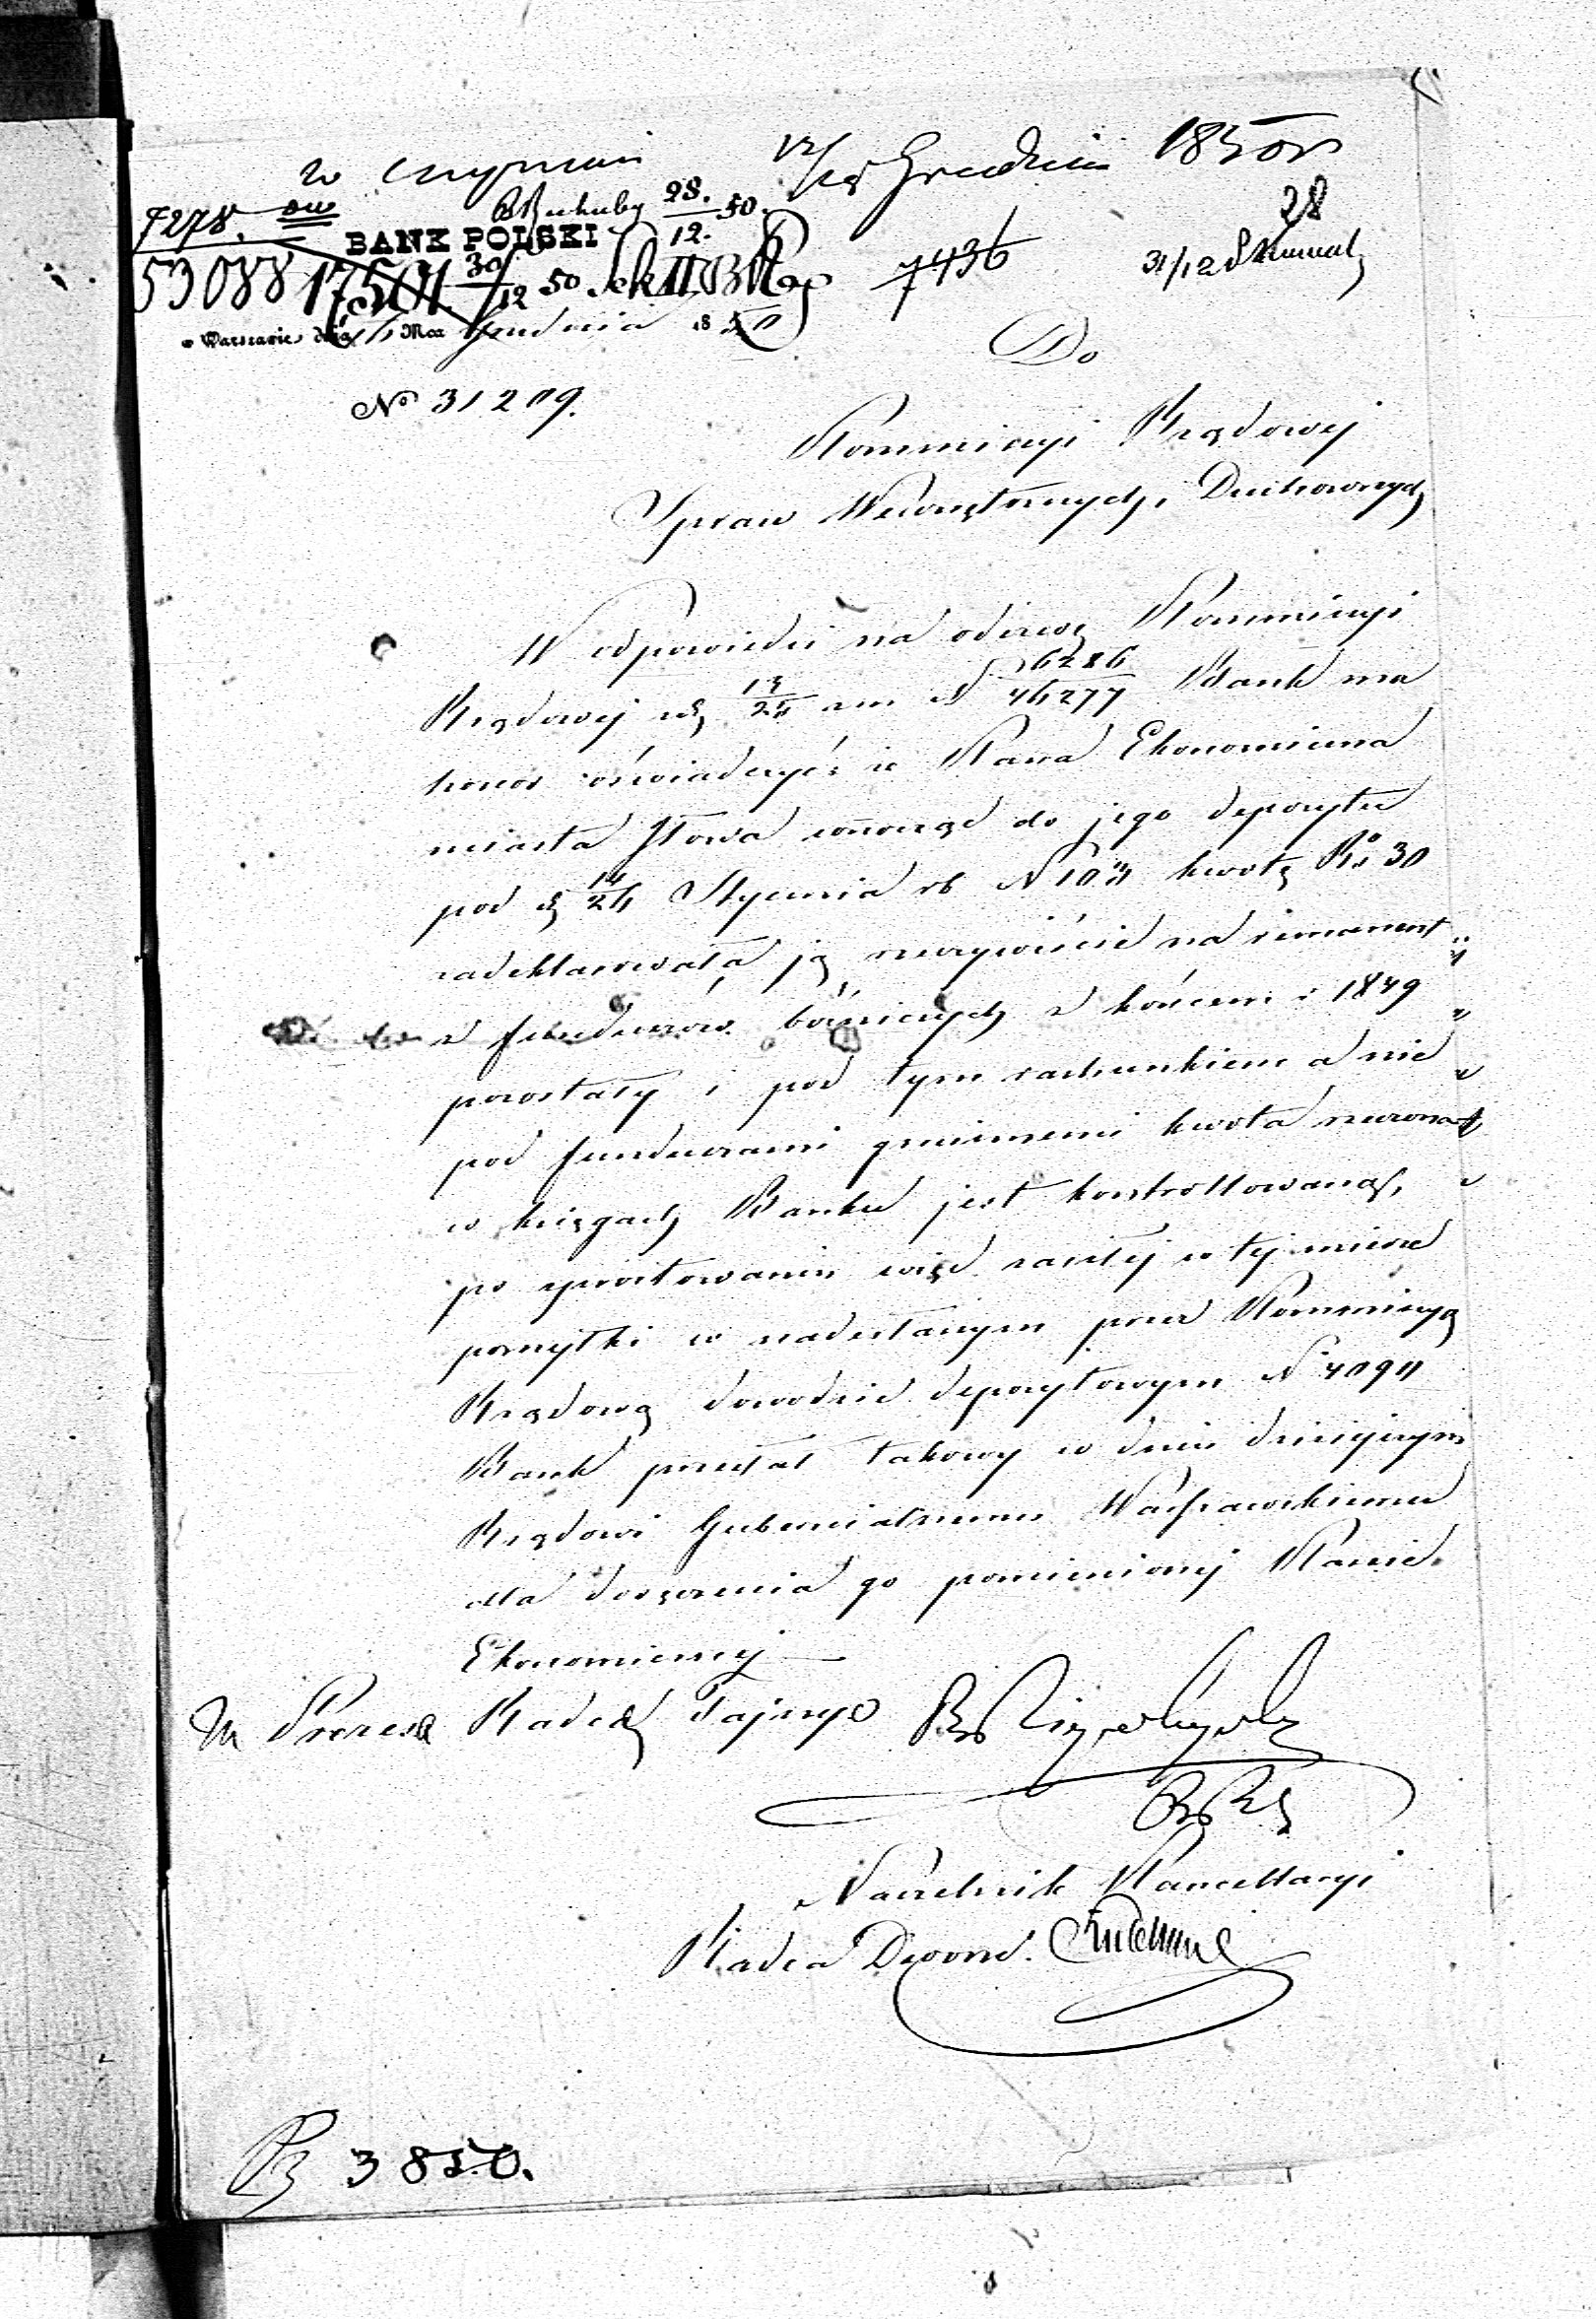 w
Grudnia 1850 r
7278.
28. 50.
12.
28
BANK POLSKI
53088 17501 30/12 50
7436
31/12
w Warszawie dnia Grudnia 1850
Do
No 31209.
Kommissyi Rządowej
Spraw Wewnętrznych i Duchownych
W odpowiedzi na odezwę Kommissyi
Rządowej z d. 13/25 zm N 6286/46277 Bank ma
honor oświadczyć, iż Kassa Ekonomiczna
miasta Iłowa wnosząc do jego depozytu
pod d. 14/26 Stycznia rb N kwotę Rs 30
zadeklarowała ją rzeczywiście na remanent
z funduszów bóżniczych z końcem r 1849
pozostały i pod tym rachunkiem a nie
pod funduszami gminnemi kwota rzeczona
w księgach Banku jest kontrollowaną,
po sprostowaniu więc zaszłej w tej mierze
pomyłki w nadesłanym przez Kommissyą
Rządową dowodzie depozytowym N
Bank przesłał takowy w dniu dzisiejszym
Rządowi Gubernialnemu Warszawskiemu
dla doręczenia go pomienionej Kassie
Ekonomicznej
Prezesa Radca Tajny
Naczelnik Kancellaryi
Radca Dworu
3850.